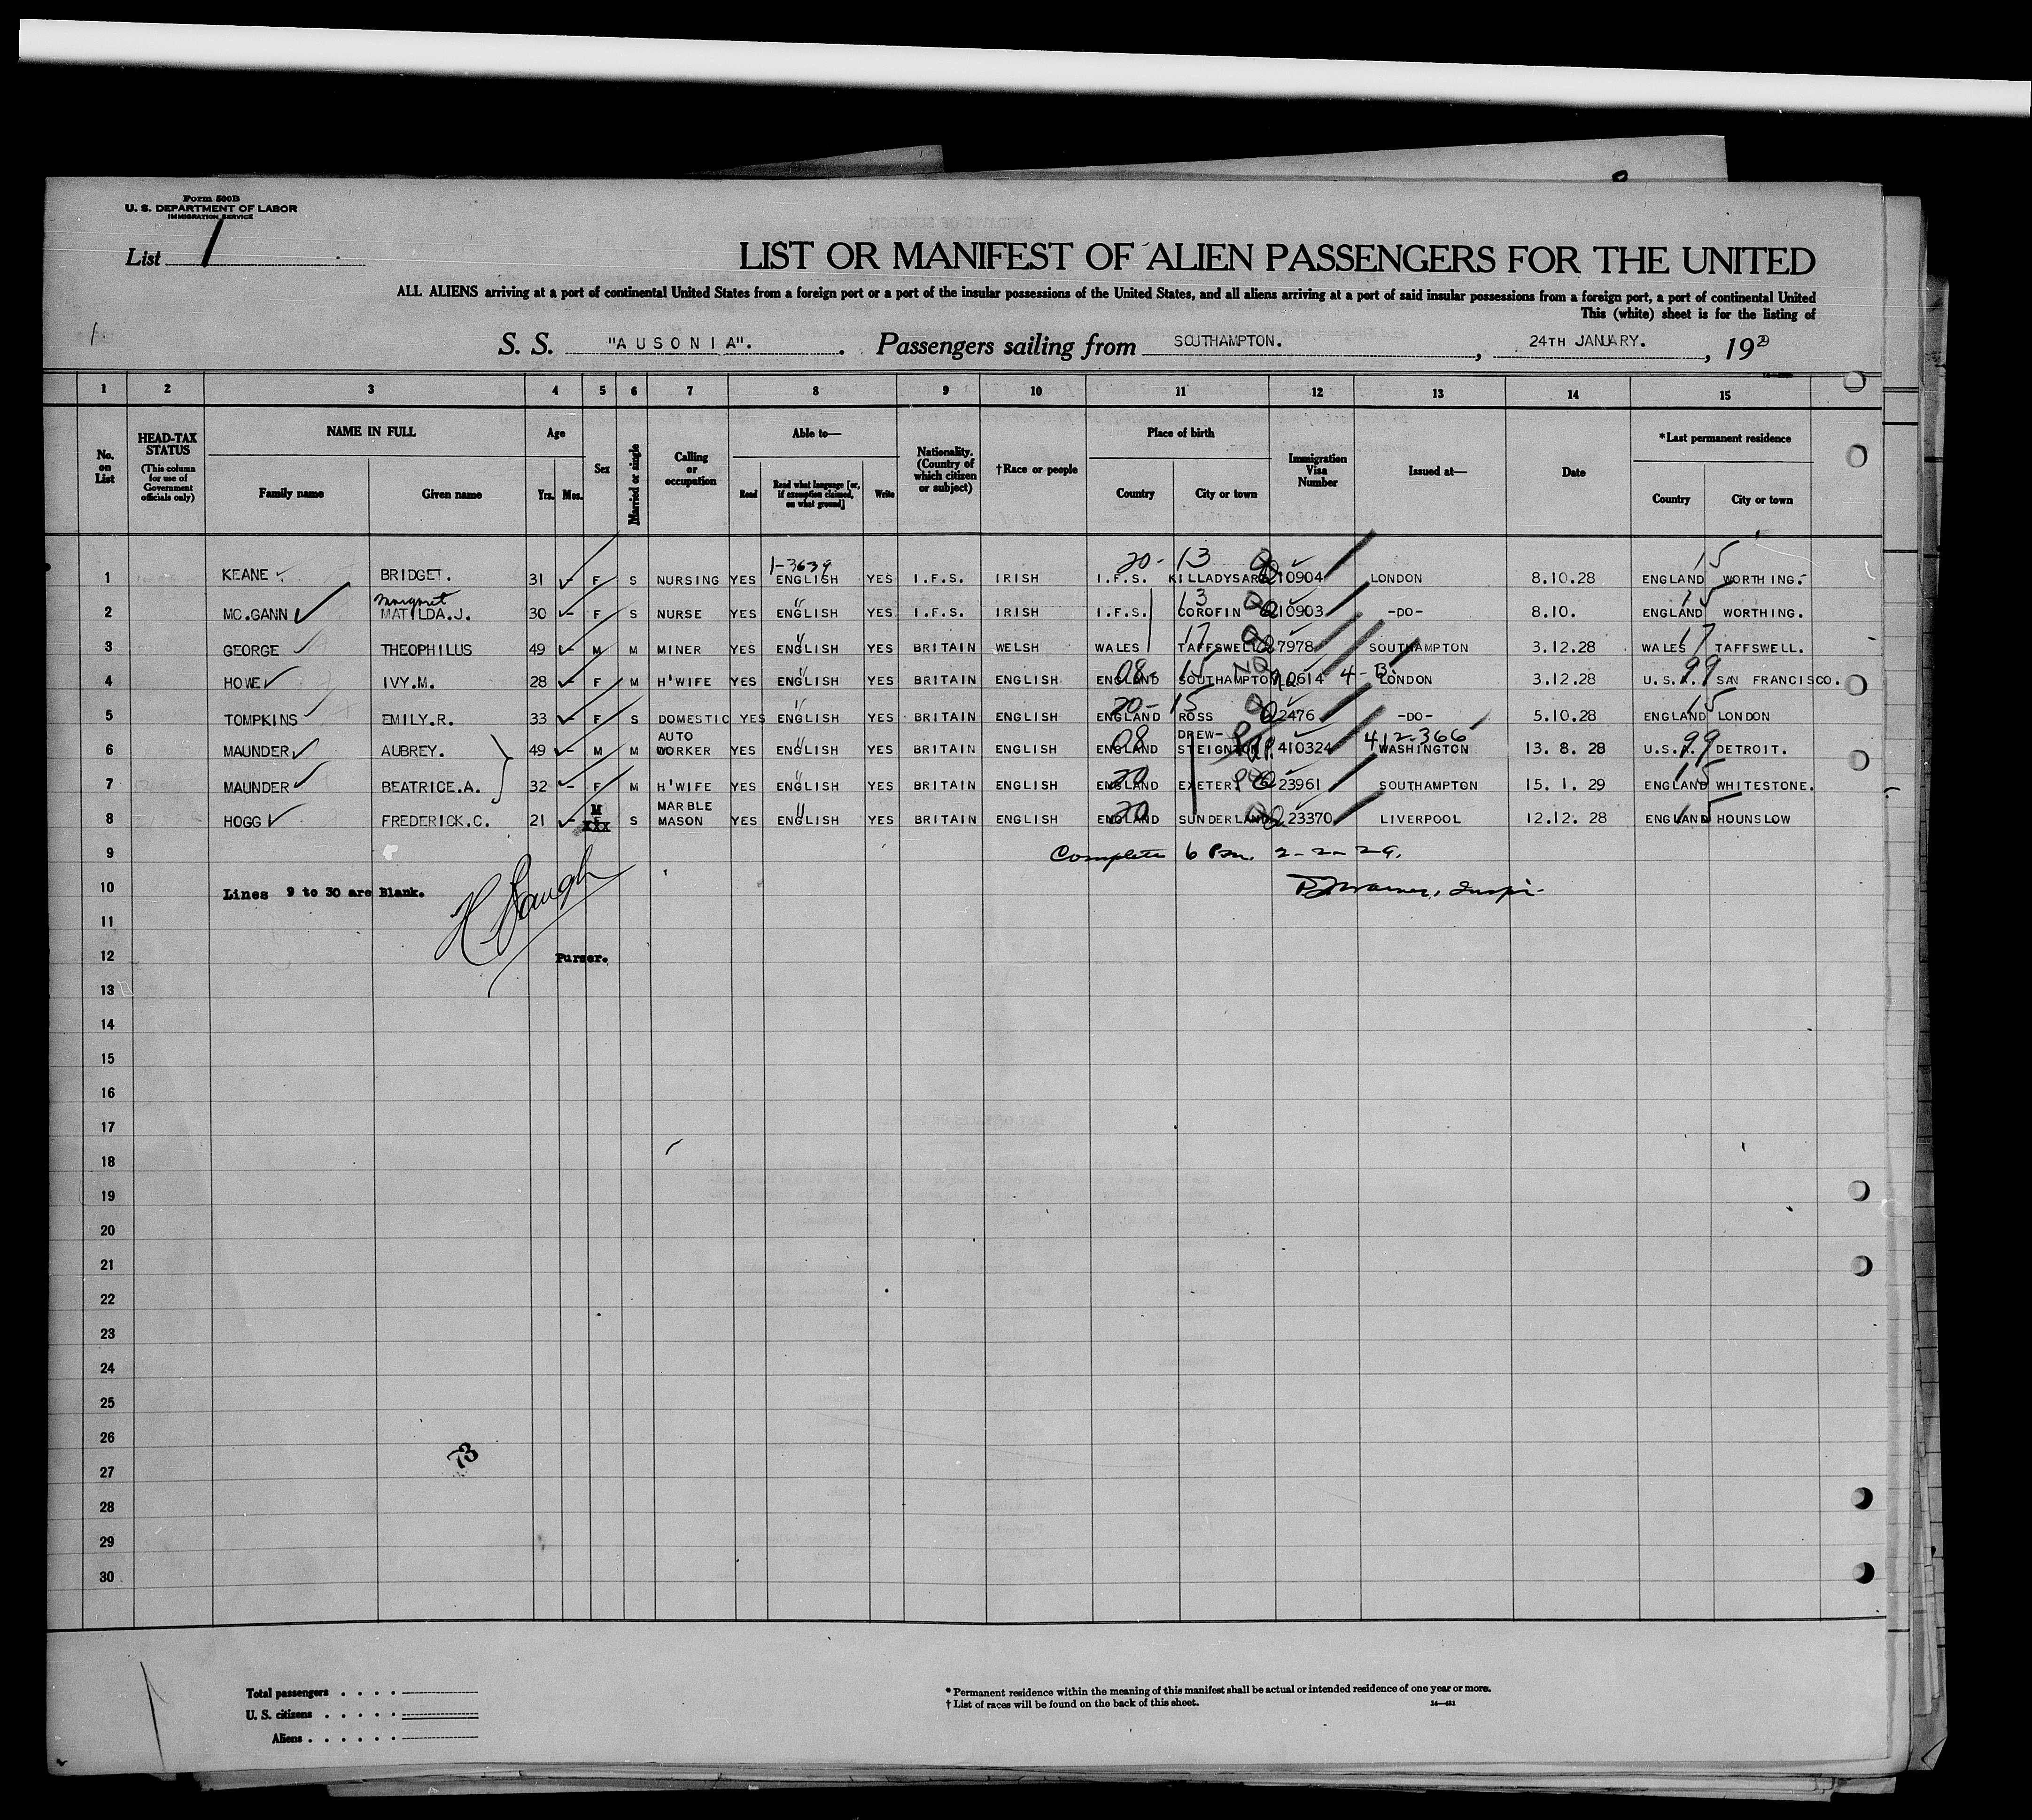 Form 500B
U. S. DEPARTMENT OF LABOR
IMMIGRATION SERVICE
List 1
LIST OR MANIFEST OF ALIEN PASSENGERS FOR THE UNITED
ALL ALIENS arriving at a port of continental United States from a foreign port or a port of the insular possessions of the United States, and all aliens arriving at a port of said insular possessions from a foreign port, a port of continental United
This (white) sheet is for the listing of
S. S. "AUSONIA". Passengers sailing from SOUTHAMPTON. , 24TH JANUARY. , 1929
1 2 3 4 5 6 7 8 9 10 11 12 13 14 15
No. on List
HEAD-TAX STATUS (This column for use of Government officials only)
NAME IN FULL Family name Given name
Age Yrs. Mos.
Sex
Married or single
Calling or occupation
Able to— Read Read what language [or, if exemption claimed, on what ground] Write
Nationality. (Country of which citizen or subject)
†Race or people
Place of birth Country City or town
Immigration Visa Number
Issued at—
Date
*Last permanent residence Country City or town
1-3639 20- 13 15
1 KEANE BRIDGET. 31 F S NURSING YES ENGLISH YES I.F.S. IRISH I.F.S. KILLADYSART 10904 LONDON 8.10.28 ENGLAND WORTHING.
Margaret 13 15
2 MC.GANN MATILDA.J. 30 F S NURSE YES ENGLISH YES I.F.S. IRISH I.F.S. COROFIN 10903 -DO- 8.10. ENGLAND WORTHING.
17 17
3 GEORGE THEOPHILUS 49 M M MINER YES ENGLISH YES BRITAIN WELSH WALES TAFFSWELL 7978 SOUTHAMPTON 3.12.28 WALES TAFFSWELL.
08- 15 NQ 4-B. 99
4 HOWE IVY.M. 28 F M H'WIFE YES ENGLISH YES BRITAIN ENGLISH ENGLAND SOUTHAMPTON 614 LONDON 3.12.28 U.S.A. SAN FRANCISCO.
20- 15 15
5 TOMPKINS EMILY.R. 33 F S DOMESTIC YES ENGLISH YES BRITAIN ENGLISH ENGLAND ROSS 2476 -DO- 5.10.28 ENGLAND LONDON
AUTO 08 DREW- 412-366 99
6 MAUNDER AUBREY. 49 M M WORKER YES ENGLISH YES BRITAIN ENGLISH ENGLAND STEIGNTON 410324 WASHINGTON 13. 8. 28 U.S.A. DETROIT.
20 15
7 MAUNDER BEATRICE.A. 32 F M H'WIFE YES ENGLISH YES BRITAIN ENGLISH ENGLAND EXETER 23961 SOUTHAMPTON 15. 1. 29 ENGLAND WHITESTONE.
M MARBLE 20 15
8 HOGG FREDERICK.C. 21 XXX S MASON YES ENGLISH YES BRITAIN ENGLISH ENGLAND SUNDERLAND 23370 LIVERPOOL 12.12. 28 ENGLAND HOUNSLOW
9 Complete 6 Pm. 2-2-29.
10 Lines 9 to 30 are Blank.
11
12 Purser.
13
14
15
16
17
18
19
20
21
22
23
24
25
26
73
27
28
29
30
Total passengers . . . .
U. S. citizens . . . . .
Aliens . . . . . .
* Permanent residence within the meaning of this manifest shall be actual or intended residence of one year or more.
† List of races will be found on the back of this sheet. 14—421